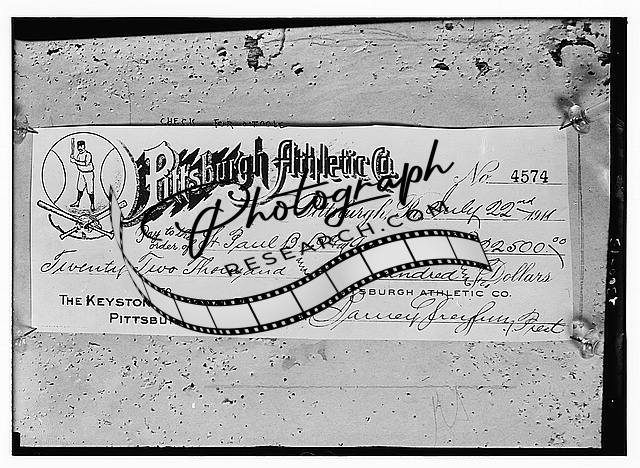 CHECK FOR O'TOOLE
Pittsburgh Athletic Co.
No. 4574
Pittsburgh, July 22nd 1911
Pay to the
order of St Paul B. B. $22500.00
Twenty Two Thousand Hundred Dollars
THE KEYSTON
PITTSBURGH ATHLETIC CO.
PITTSBU
Barney Dreyfuss, Prest
Photograph
RESEARCH.COM